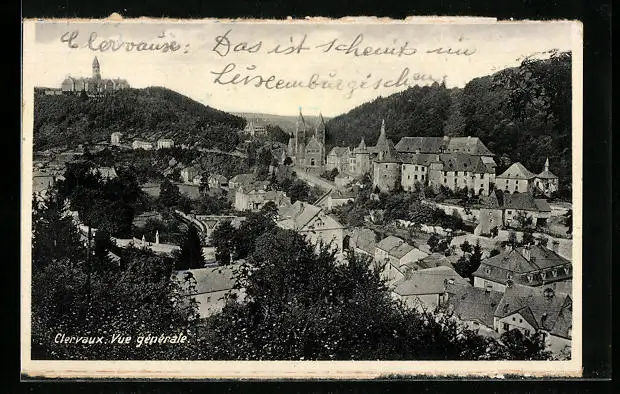 Clervause: Das ist schemit im
Luxemburgischen
Clervaux. Vue générale.